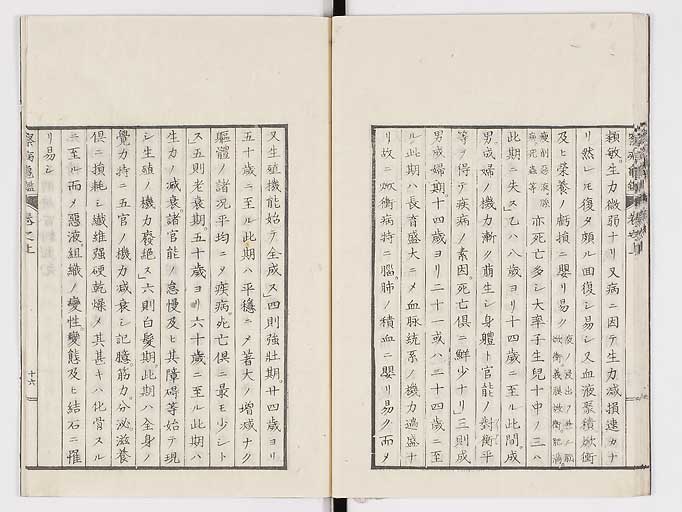 頴敏生力微弱ナリ又病ニ因テ生力減損速カナ
リ然レ𪜈復タ頗ル回復シ易シ又血液聚積焮衝
及ヒ榮養ノ虧損ニ嬰リ易ク
焮衝義膜焮衝肥満
亦死亡多シ大率子生兒十中ノ三ハ
此期ニ失ス乙ハ八歳ヨリ十四歳ニ至ル此間成
男成婦ノ機力漸ク萠生シ身體ト官能ノ對衡平
等ヲ得テ疾病ノ素因死亡倶ニ鮮少ナリ」三則成
男成婦期十四歳ヨリ二十一或ハ二十四歳ニ至
ル此期ハ長育盛大ニ〆血脉統系ノ機力過盛ナ
リ故ニ焮衝病特ニ腦肺ノ積血ニ嬰リ易ク而〆
又生殖機能始テ全成ス」四則強壯期廿四歳ヨリ
五十歳ニ至ル此期ハ平穩ニ〆著大ノ増減ナク
軀體ノ諸況平均ニ〆疾病死亡倶ニ最モ少シト
ス五則老衰期五十歳ヨリ六十歳ニ至ル此期ハ
生力ノ減衰諸官能ノ怠慢及ヒ其障碍等始テ現
シ生殖ノ機力廢絶ス」六則白髮期此期ハ全身ノ
覺力特ニ五官ノ機力減衰シ記臆筋力分泌滋養
倶ニ損耗シ纎維強硬乾燥〆其甚キハ化骨スル
ニ至ル而〆惡液組織ノ變性變態及ヒ結石ニ罹
リ易シ
卷之上
十六